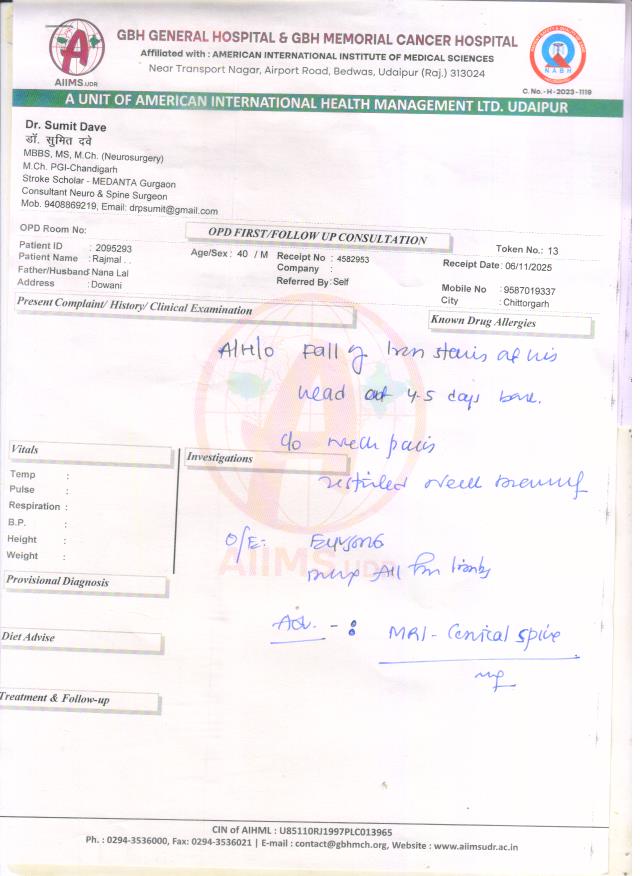 GBH GENERAL HOSPITAL & GBH MEMORIAL CANCER HOSPITAL
Affiliated with : AMERICAN INTERNATIONAL INSTITUTE OF MEDICAL SCIENCES
Near Transport Nagar, Airport Road, Bedwas, Udaipur (Raj.) 313024
AIIMS.UDR
NABH
C. No.- H - 2023 - 1119
A UNIT OF AMERICAN INTERNATIONAL HEALTH MANAGEMENT LTD. UDAIPUR
Dr. Sumit Dave
डॉ. सुमित दवे
MBBS, MS, M.Ch. (Neurosurgery)
M.Ch. PGI-Chandigarh
Stroke Scholar - MEDANTA Gurgaon
Consultant Neuro & Spine Surgeon
Mob. 9408869219, Email: drpsumit@gmail.com
OPD Room No:
OPD FIRST/FOLLOW UP CONSULTATION
Token No.: 13
Patient ID : 2095293
Age/Sex : 40 / M
Receipt No : 4582953
Receipt Date : 06/11/2025
Patient Name : Rajmal . .
Company :
Father/Husband Nana Lal
Referred By : Self
Mobile No : 9587019337
Address : Dowani
City : Chittorgarh
Present Complaint/ History/ Clinical Examination
Known Drug Allergies
A/H/o Fall of Iron stairs at his
head 4-5 days back.
C/o neck pain
neck
Vitals
Investigations
Temp :
Pulse :
Respiration :
B.P. :
Height :
Weight :
O/E:
All four limbs
AIIMS.UDR
Provisional Diagnosis
Adv. - :
MRI - Cervical Spine
Diet Advise
Treatment & Follow-up
CIN of AIHML : U85110RJ1997PLC013965
Ph. : 0294-3536000, Fax: 0294-3536021 | E-mail : contact@gbhmch.org, Website : www.aiimsudr.ac.in